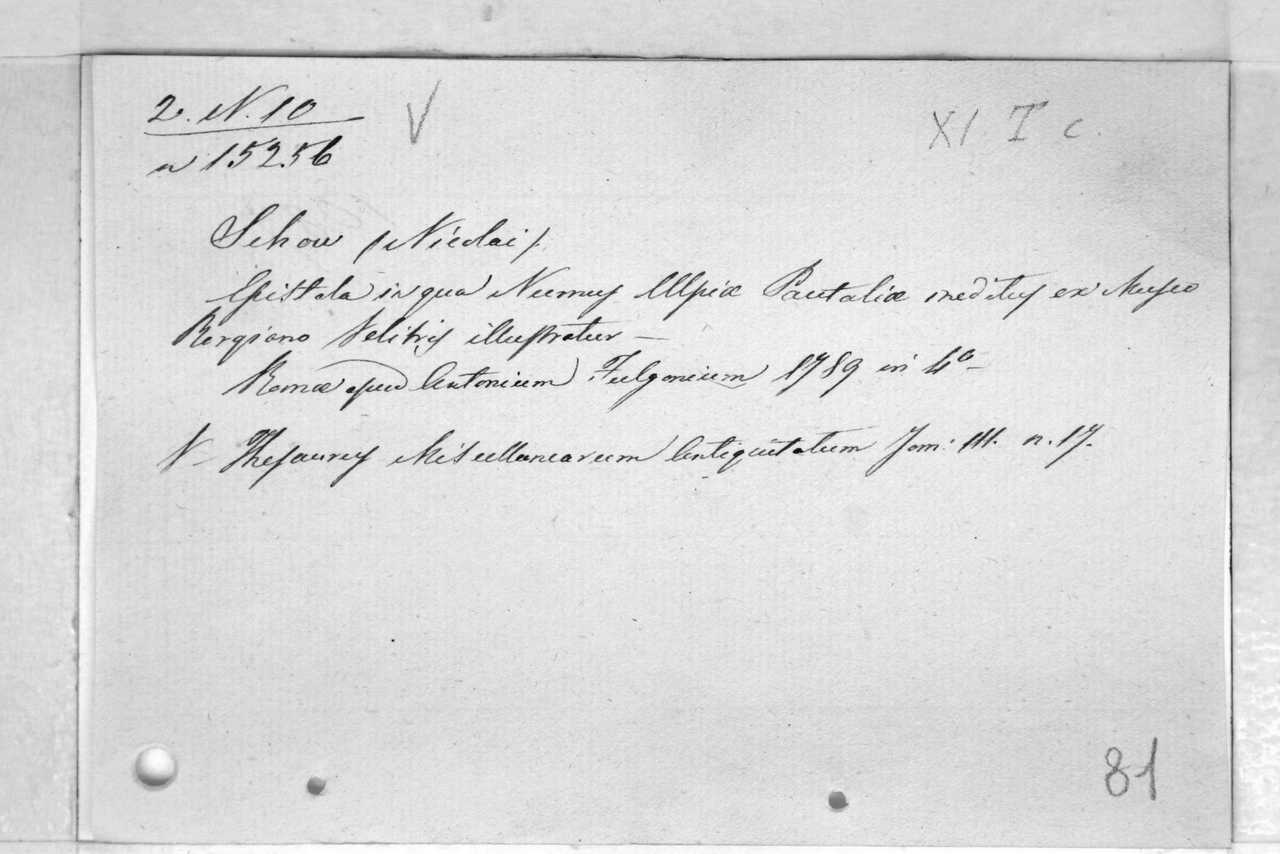 2. N. 10 V XI. T c.
n 15256
Schow (Nicolai)
Epistola in qua Numus Ulpiæ Pautaliæ ineditus ex Museo
Borgiano Velitris illustratur —
Romæ apud Antonium Fulgonium 1789 in 4º —
V Thesaurus Miscellanearum Antiquitatum Tom: III. n. 17.
81